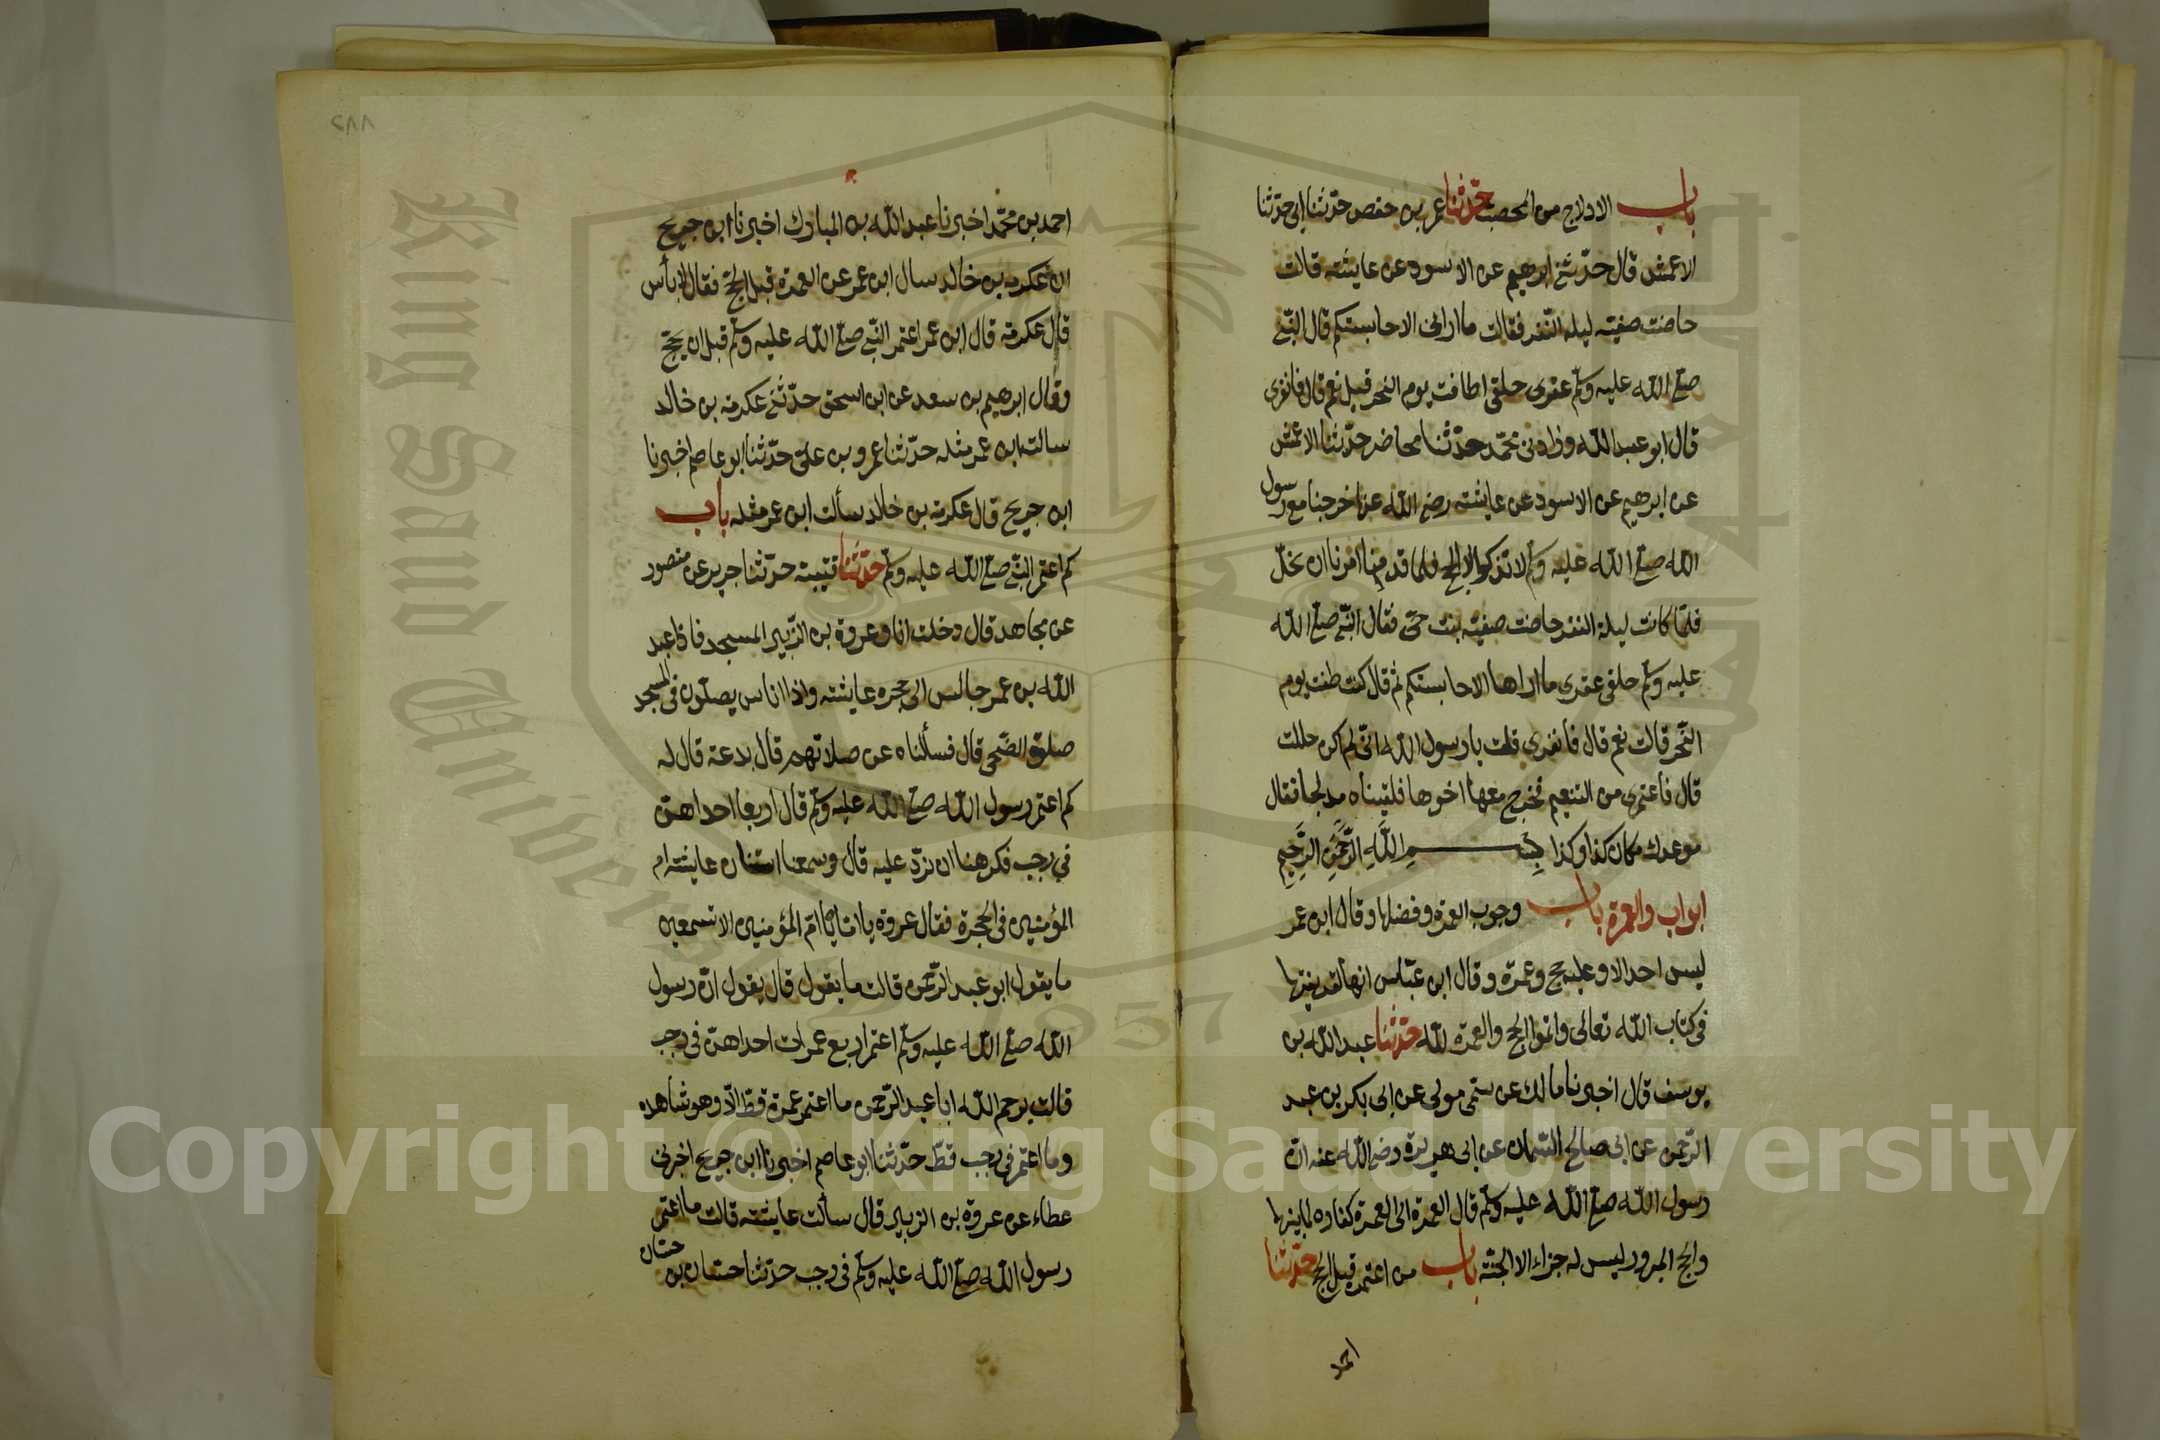 باب الادلاج من المحصب حدّثنا عمر بن حفص حدّثنا ابي حدّثنا
الاعمش قال حدّثني ابرهيم عن الاسود عن عايشة قالت
حاضت صفيّة ليلة النّفر فقالت ما اراني الا حابستكم قال النّبي
صلّى الله عليه وسلّم عقرى حلقى اطافت يوم النحر قيل نعم قال فانفري
قال ابو عبد الله وزادني محمّد حدّثنا محاضر حدّثنا الاعمش
عن ابرهيم عن الاسود عن عايشة رضي الله عنها خرجنا مع رسول
الله صلّى الله عليه وسلّم لا نذكر الا الحج فلما قدمنا امرنا ان نحلّ
فلمّا كانت ليلة النفر حاضت صفيّة بنت حيّ فقال النّبي صلّى الله
عليه وسلّم حلقى عقرى ما اراها الا حابستكم ثم قال كنت طفت يوم
النّحر قالت نعم قال فانفري قلت يا رسول الله انّي لم اكن حللت
قال فاعتمري من التنعيم فخرج معها اخوها فلقيناه مدلجا فقال
موعدك مكان كذا وكذا بِسْمِ اللَّهِ الرَّحْمٰنِ الرَّحِيمِ
ابواب والعمرة باب وجوب العمرة وفضلها وقال ابن عمر
ليس احد الا وعليه حج وعمرة وقال ابن عبّاس انها لقرينتها
في كتاب الله تعالى واتموا الحج والعمرة لله حدّثنا عبد الله بن
يوسف قال اخبرنا مالك عن سمّى مولى عن ابي بكر بن عبد
الرّحمن عن ابي صالح السّمان عن ابي هريرة رضي الله عنه انّ
رسول الله صلّى الله عليه وسلّم قال العمرة الى العمرة كفارة لما بينها
والحج المبرور ليس له جزاء الا الجنّة باب من اعتمر قبل الحج حدّثنا
احمد
٢٨٨
احمد بن محمّد اخبرنا عبد الله بن المبارك اخبرنا ابن جريج
ان عكرمة بن خالد سال ابن عمر عن العمرة قبل الحج فقال لا بأس
قال عكرمة قال ابن عمر اعتمر النّبي صلّى الله عليه وسلّم قبل ان يحجّ
وقال ابرهيم بن سعد عن ابن اسحق حدّثني عكرمة بن خالد
سالت ابن عمر مثله حدّثنا عمرو بن علىّ حدّثنا ابو عاصم اخبرنا
ابن جريج قال عكرمة بن خالد سألت ابن عمر مثله باب
كم اعتمر النّبي صلّى الله عليه وسلّم حدّثنا قتيبة حدّثنا جرير عن منصور
عن مجاهد قال دخلت انا وعروة بن الزّبير المسجد فاذا عبد
الله بن عمر جالس الى حجرة عايشة واذا اناس يصلّون في المسجد
صلوة الضّحى قال فسألناه عن صلاتهم قال بدعة قال له
كم اعتمر رسول الله صلّى الله عليه وسلّم قال اربعا احداهنّ
في رجب فكرهنا ان نردّ عليه قال وسمعنا استنان عايشة ام
المؤمنين في الحجرة فقال عروة يا امّ المؤمنين الا تسمعين
ما يقول ابو عبد الرّحمن قالت ما يقول قال يقول انّ رسول
الله صلّى الله عليه وسلّم اعتمر اربع عمرات احداهنّ في رجب
قالت يرحم الله ابا عبد الرّحمن ما اعتمر عمرة قطّ الّا وهو شاهده
وما اعتمر في رجب قطّ حدّثنا ابو عاصم اخبرنا ابن جريج اخبرني
عطاء عن عروة بن الزبير قال سألت عايشة قالت ما اعتمر
رسول الله صلّى الله عليه وسلّم في رجب حدّثنا حسّان بن حسّان
King Saud University
1957
Copyright © King Saud University